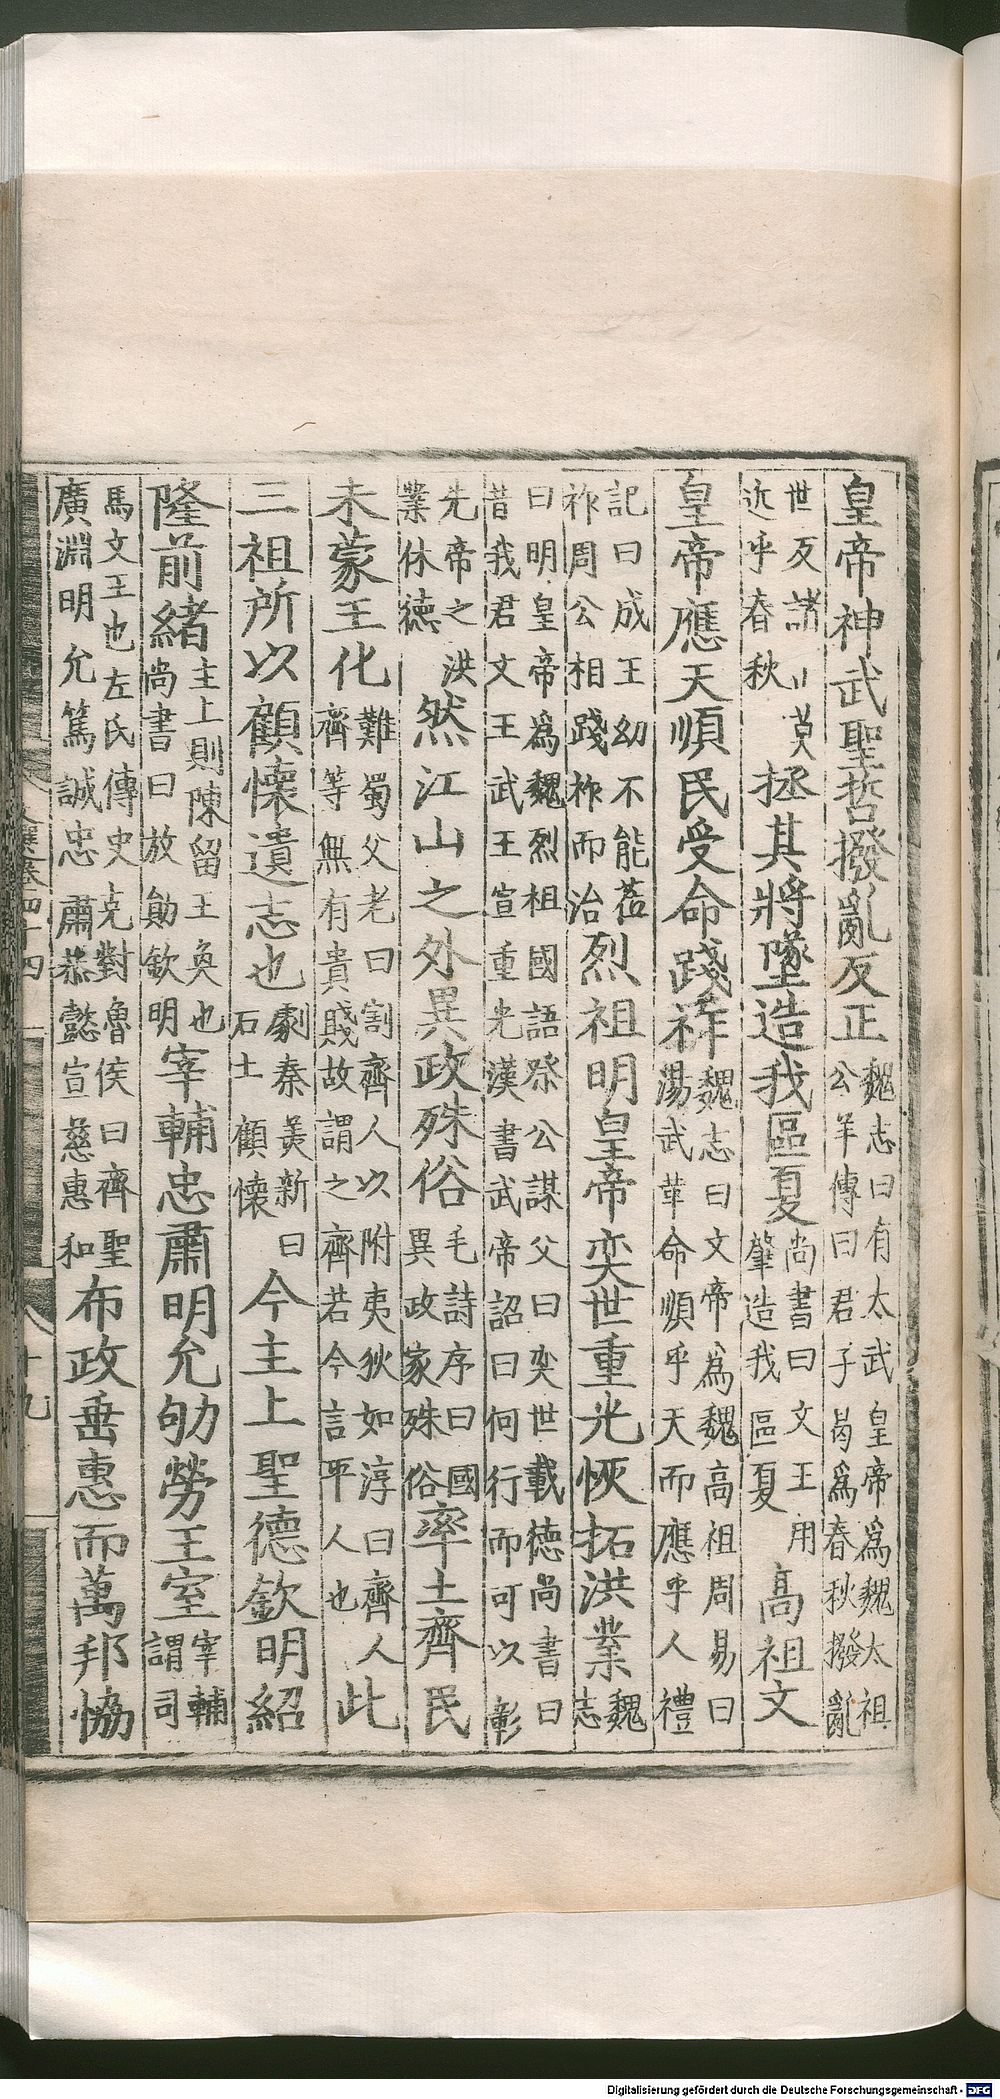 皇帝神武聖哲撥亂反正魏志曰有太武皇帝爲魏太祖公羊傳曰君子曷爲春秋撥亂
世反諸莫近乎春秋拯其將墜造我區夏尚書曰文王用肇造我區夏高祖文
皇帝應天順民受命踐祚魏志曰文帝爲魏高祖周易曰湯武革命順乎天而應乎人禮
記曰成王幼不能莅祚周公相踐祚而治烈祖明皇帝奕世重光恢拓洪業魏志
曰明皇帝爲魏烈祖國語祭公謀父曰奕世載德尚書曰昔我君文王武王宣重光漢書武帝詔曰何行而可以彰
先帝之洪業休德然江山之外異政殊俗毛詩序曰國異政家殊俗率土齊民
未蒙王化難蜀父老曰割齊人以附夷狄如淳曰齊人齊等無有貴賤故謂之齊若今言平人也此
三祖所以顧懷遺志也劇秦美新曰石土顧懷今主上聖德欽明紹
隆前緒主上則陳留王奐也尚書曰放勛欽明宰輔忠肅明允劬勞王室宰輔謂司
馬文王也左氏傳史克對魯侯曰齊聖廣淵明允篤誠忠肅恭懿宣慈惠和布政垂惠而萬邦協
選卷四十四
十九
Digitalisierung gefördert durch die Deutsche Forschungsgemeinschaft - DFG